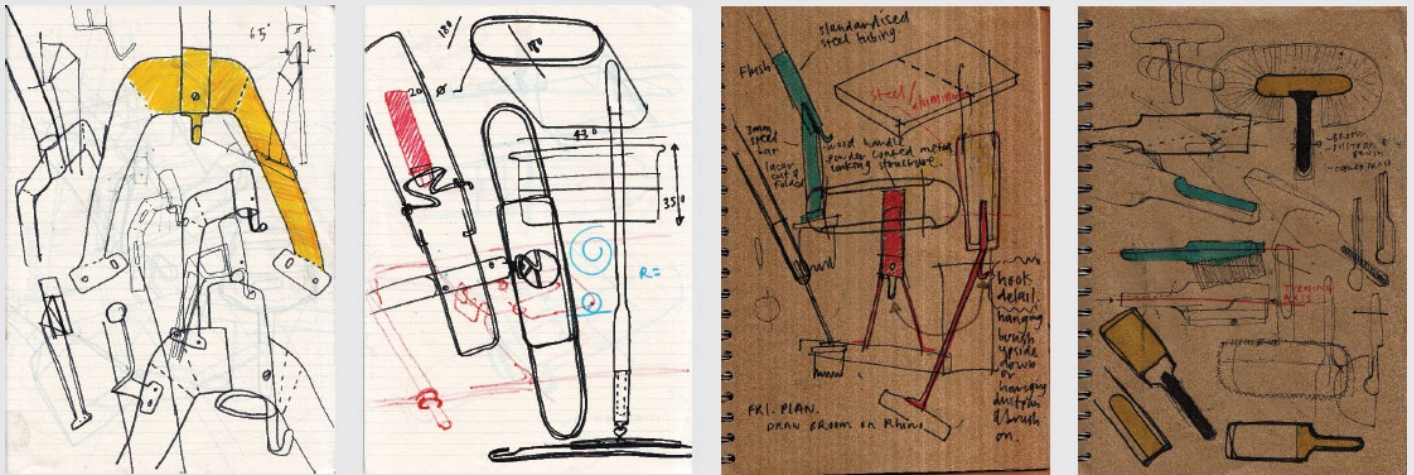 65°
180
180
20
ø
430
350
R=
standardised
steel tubing
Flush
steel/
aluminium
3mm
steel
bar
laser
cut &
folded
wood handle
powder coated metal
linking structure
hook
detail.
hanging
brush
upside
down
or
hanging
dustpan
& brush
on.
FRI. PLAN.
DRAW BROOM on Rhino
BROOM
DUSTPAN &
BRUSH
TURNING
AXIS